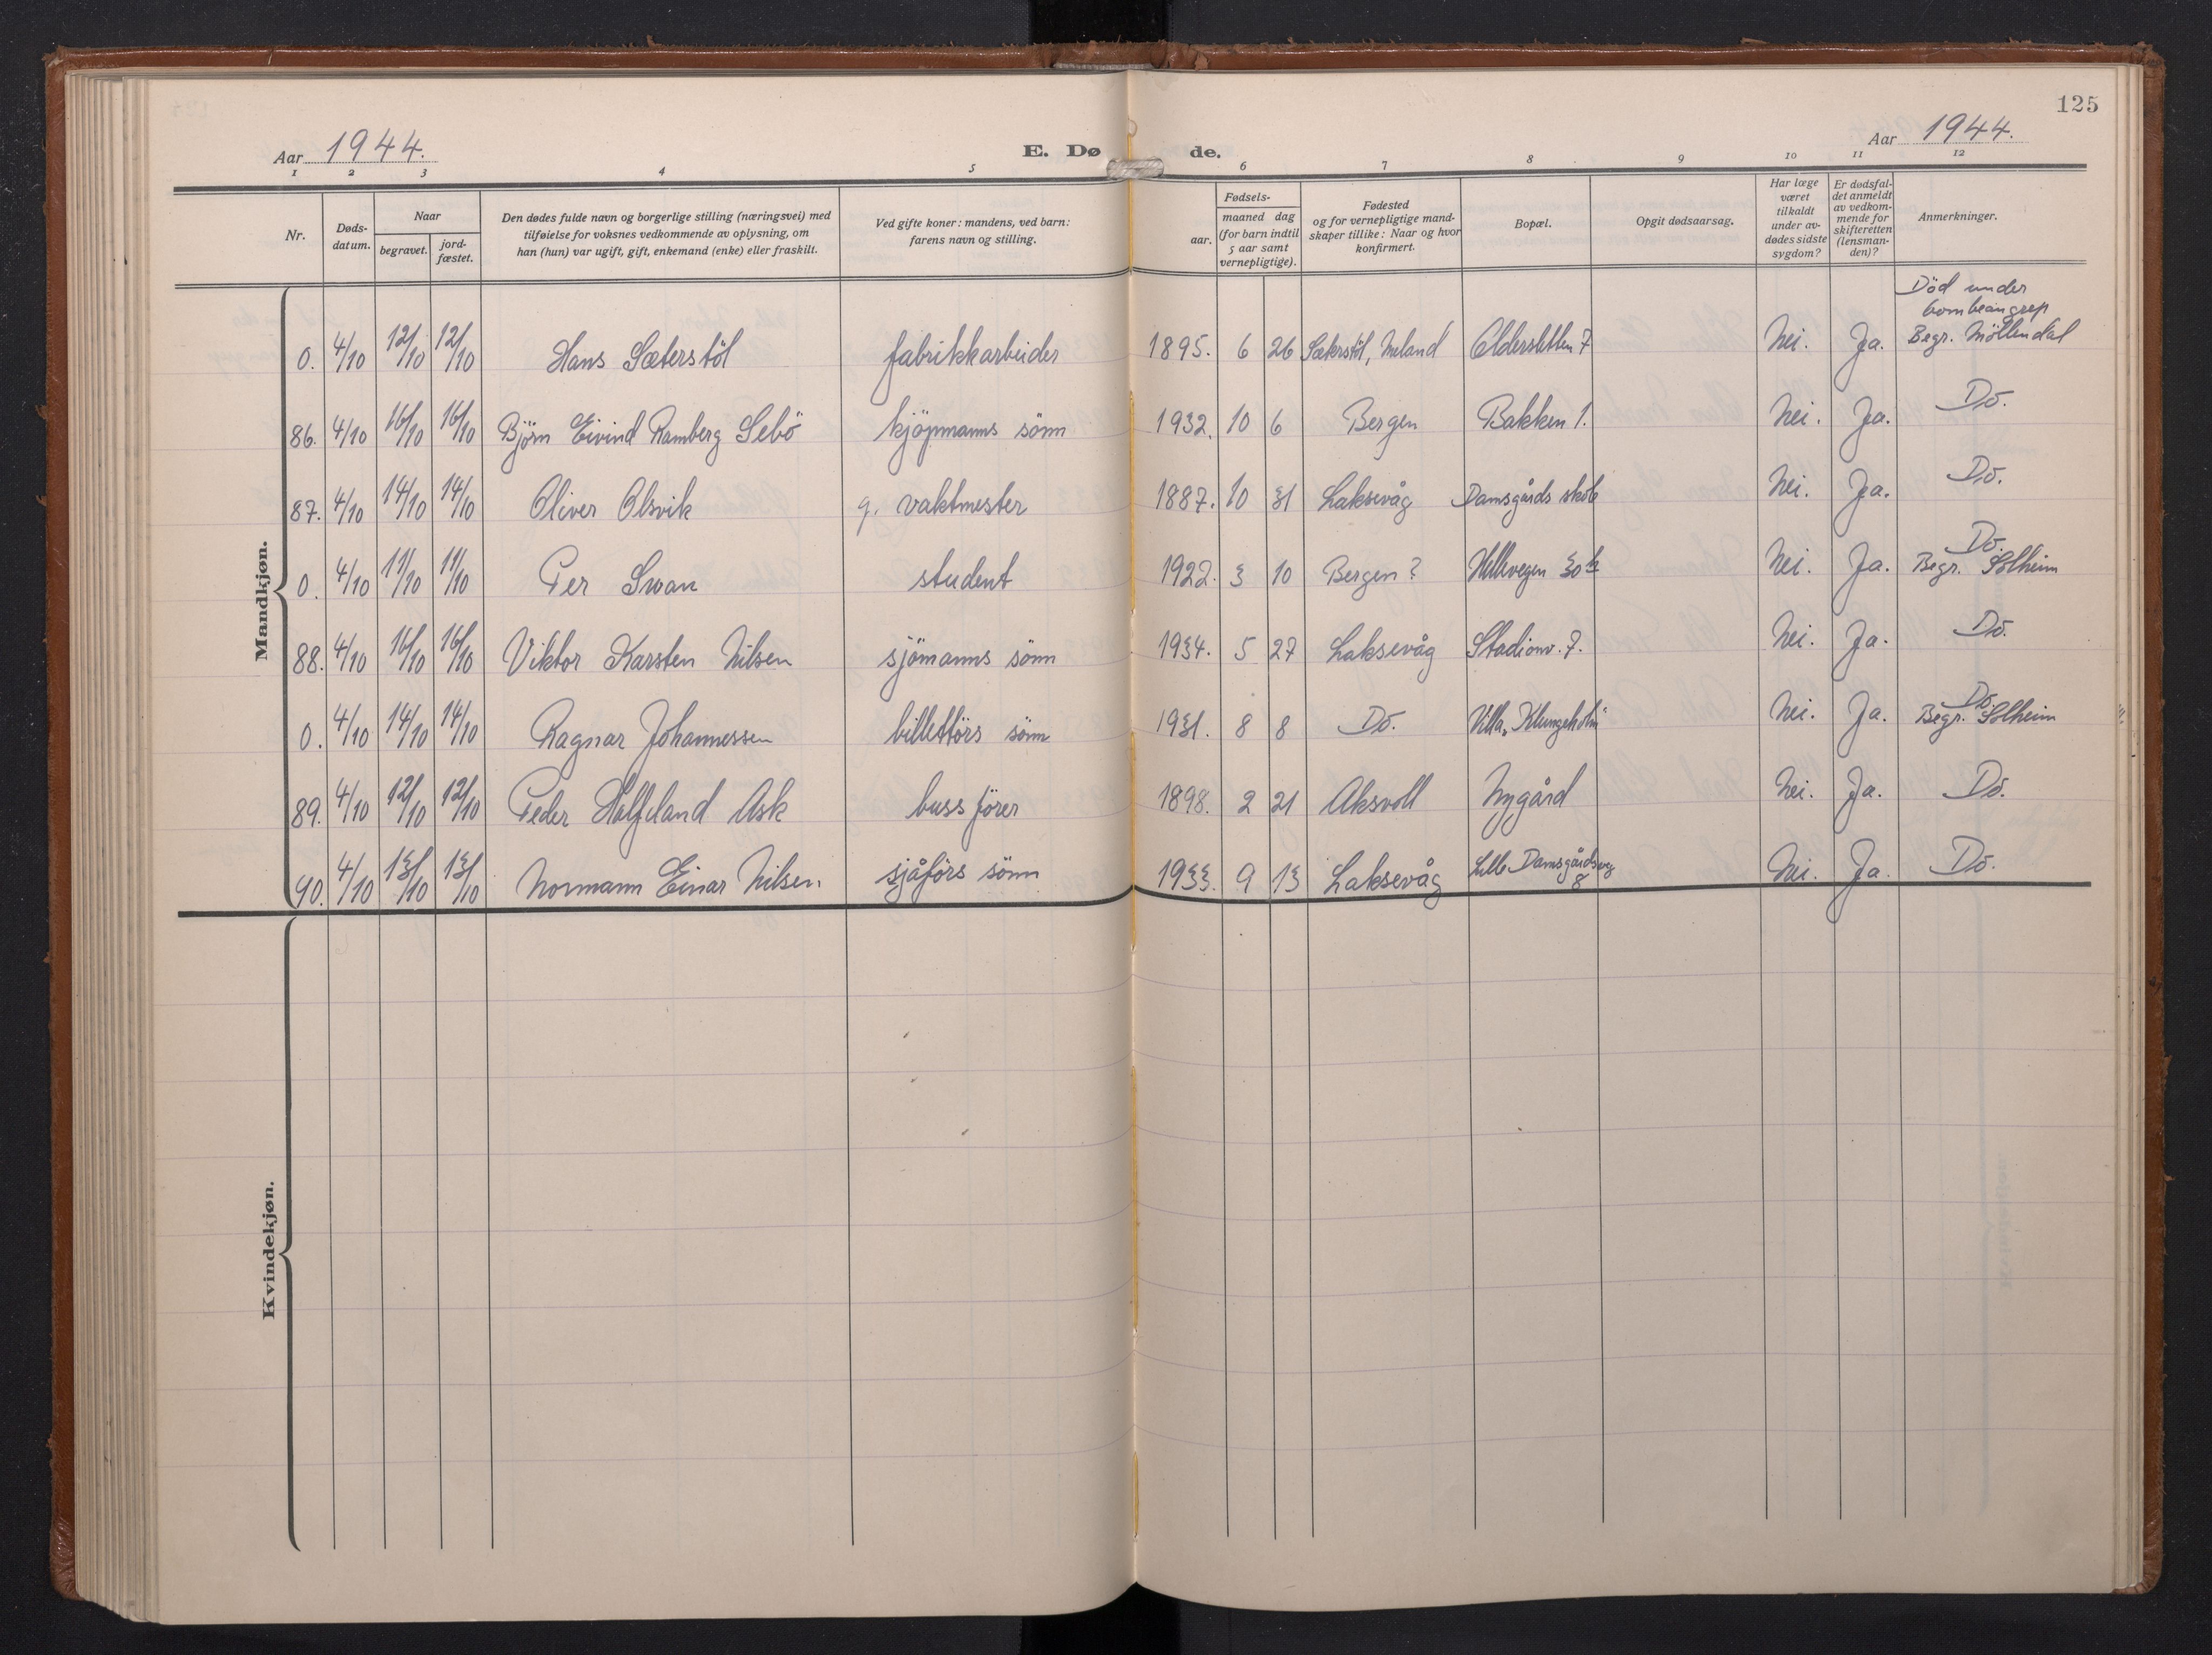 125
Aar 1944. E. Dø de. Aar 1944.
1 2 3 4 5 6 7 8 9 10 11 12
Nr.
Døds-
datum.
Naar
begravet.
jord-
fæstet.
Den dødes fulde navn og borgerlige stilling (næringsvei) med
tilføielse for voksnes vedkommende av oplysning, om
han (hun) var ugift, gift, enkemand (enke) eller fraskilt.
Ved gifte koner: mandens, ved barn:
farens navn og stilling.
Fødsels-
aar.
maaned dag
(for barn indtil
5 aar samt
vernepligtige).
Fødested
og for vernepligtige mand-
skaper tillike: Naar og hvor
konfirmert.
Bopæl.
Opgit dødsaarsag.
Har læge
været
tilkaldt
under av-
dødes sidste
sygdom?
Er dødsfal-
det anmeldt
av vedkom-
mende for
skifteretten
(lensman-
den)?
Anmerkninger.
Mandkjøn.
Død under
bombeangrep
0. 4/10 12/10 12/10 Hans Sæterstöl fabrikkarbeider 1895. 6 26 Sæterstöl, Meland Eldersletten 7 Nei. Ja. Begr. Möllendal
86. 4/10 16/10 16/10 Björn Eivind Ramberg Sebö kjöpmanns sönn 1932. 10 6 Bergen Bakken 1. Nei. Ja. Do.
87. 4/10 14/10 14/10 Oliver Olsvik g. vaktmester 1887. 10 31 Laksevåg Damsgårds skole Nei. Ja. Do.
Do.
0. 4/10 11/10 11/10 Per Svan student 1922. 3 10 Bergen? 30 Nei. Ja. Begr. Solheim
88. 4/10 16/10 16/10 Viktor Karsten Nilsen sjömanns sönn 1934. 5 27 Laksevåg Stadionv. 7. Nei. Ja. Do.
Do.
0. 4/10 14/10 14/10 Ragnar Johannessen billettörs sönn 1931. 8 8 Do. Villa „Klungeholm" Nei. Ja. Begr. Solheim
89. 4/10 12/10 12/10 Peder Ask buss förer 1898. 2 21 Aksvoll Nygård Nei. Ja. Do.
90. 4/10 13/10 13/10 Normann Einar Nilsen sjåförs sönn 1933. 9 13 Laksevåg Lille Damsgårdsveg 8 Nei. Ja. Do.
Kvindekjøn.